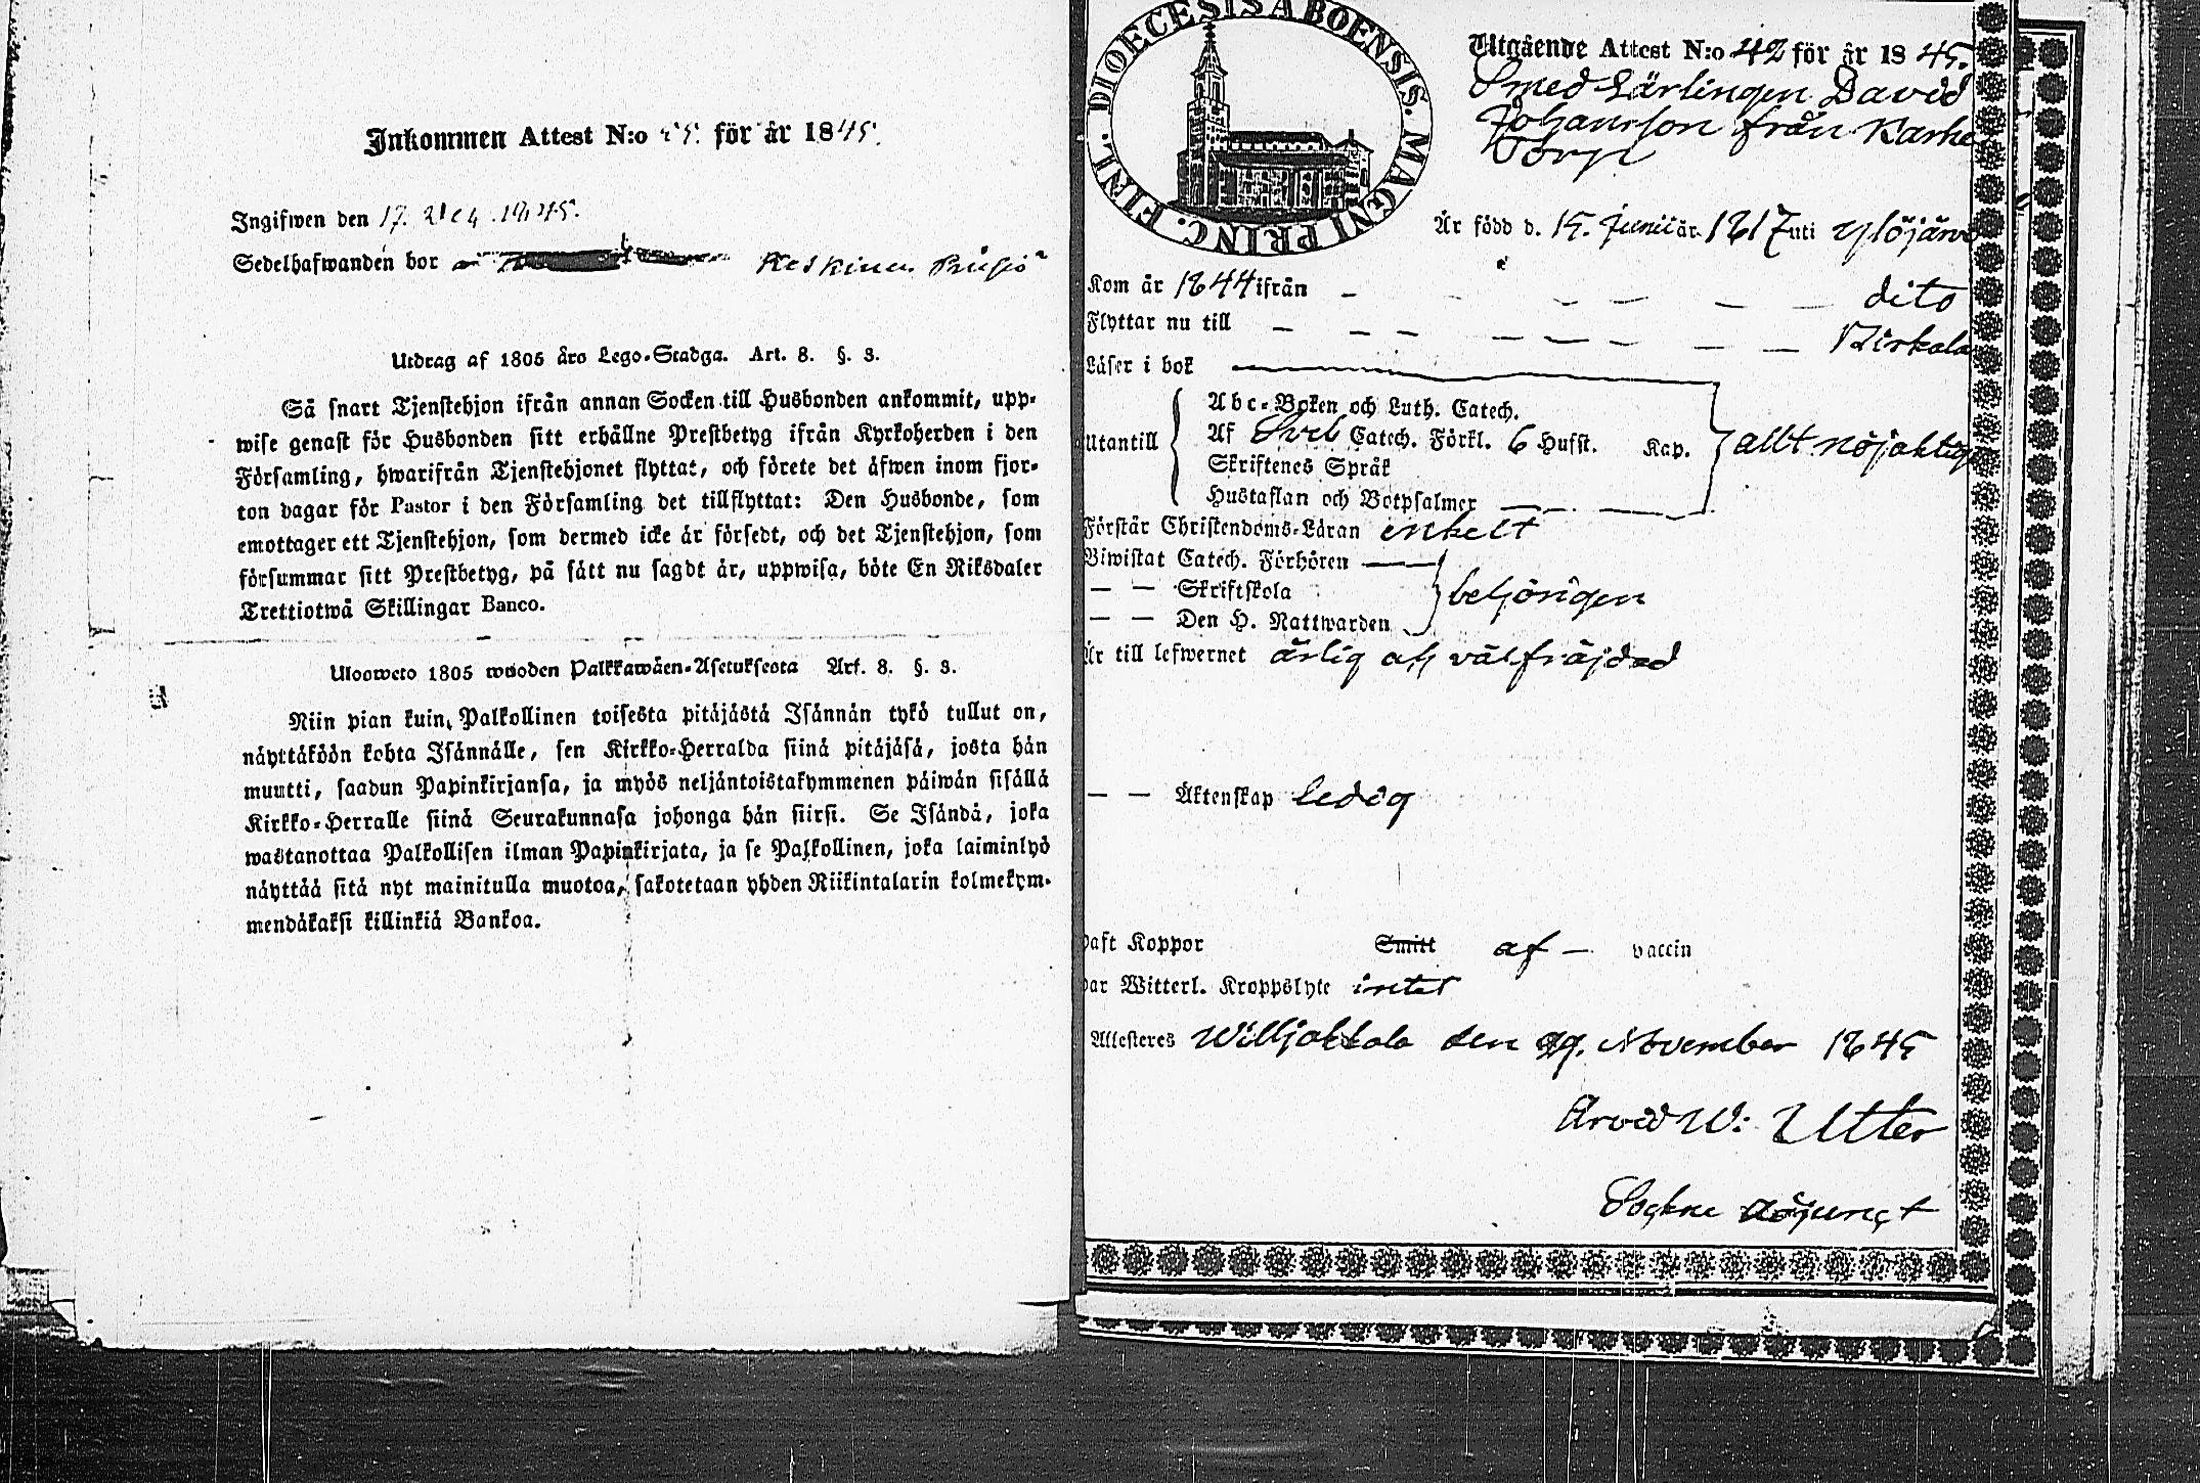 Inkommen Attest N:o för år 1845.
Ingifwen den 17. Dec. 1845.
Sedelhafwanden bor Keskinen
Utdrag af 1805 åro Lego-Stadga. Art. 8. §. 3.
Så snart Tjenstehjon ifrån annan Socken till Husbonden ankommit, upp-
wise genast för Husbonden sitt erhållne Prestbetyg ifrån Kyrkoherden i den
Församling, hwarifrån Tjenstehjonet flyttat, och förete det äfwen inom fjor-
ton dagar för Pastor i den Församling det tillflyttat: Den Husbonde, som
emottager ett Tjenstehjon, som dermed icke är försedt, och det Tjenstehjon, som
försummar sitt Prestbetyg, på sätt nu sagdt är, uppwisa, böte En Riksdaler
Trettiotwå Skillingar Banco.
Uloosweto 1805 wuoden Palkkawäen-Asetukseota Art. 8. §. 3.
Niin pian kuin Palkollinen toisesta pitäjästä Isännän tykö tullut on,
näyttäköön kohta Isännälle, sen Kirkko-Herralda siinä pitäjäsä, josta hän
muutti, saadun Papinkirjansa, ja myös neljäntoistakymmenen päiwän sisällä
Kirkko-Herralle siinä Seurakunnasa johonga hän siirsi. Se Isändä, joka
wastanottaa Palkollisen ilman Papinkirjata, ja se Palkollinen, joka laiminlyö
näyttää sitä nyt mainitulla muotoa, sakotetaan yhden Riikintalarin kolmekym-
mendäkaksi killinkiä Bankoa.
DIOECESIS ABOENSIS. MAGNI PRINC. FINL.
Utgående Attest N:o 42 för år 1845.
Smed Lärlingen David
Johansson från Karhe
Är född d. 15. Junii år 1817 uti Ylöjärvi
Kom år 1844 ifrån — dito
Flyttar nu till — Birkala
Läser i bok
Utantill
Abc-Boken och Luth. Catech.
Af Sveb Catech. Förkl. 6 Hufst. Kap. allt nöjaktigt
Skriftenes Språk
Hustaflan och Botpsalmer
Förstår Christendoms-Läran enkelt
Biwistat Catech. Förhören
— — Skriftskola behörigen
— — Den H. Nattwarden
Är till lefwernet ärlig och välfräjdad
— — Äktenskap ledig
Haft Koppor Smitt af — vaccin
Har Witterl. Kroppslyte intet
Attesteres Williakkala den 29. November 1845
Arvid W: Utter
Sockne Adjunct